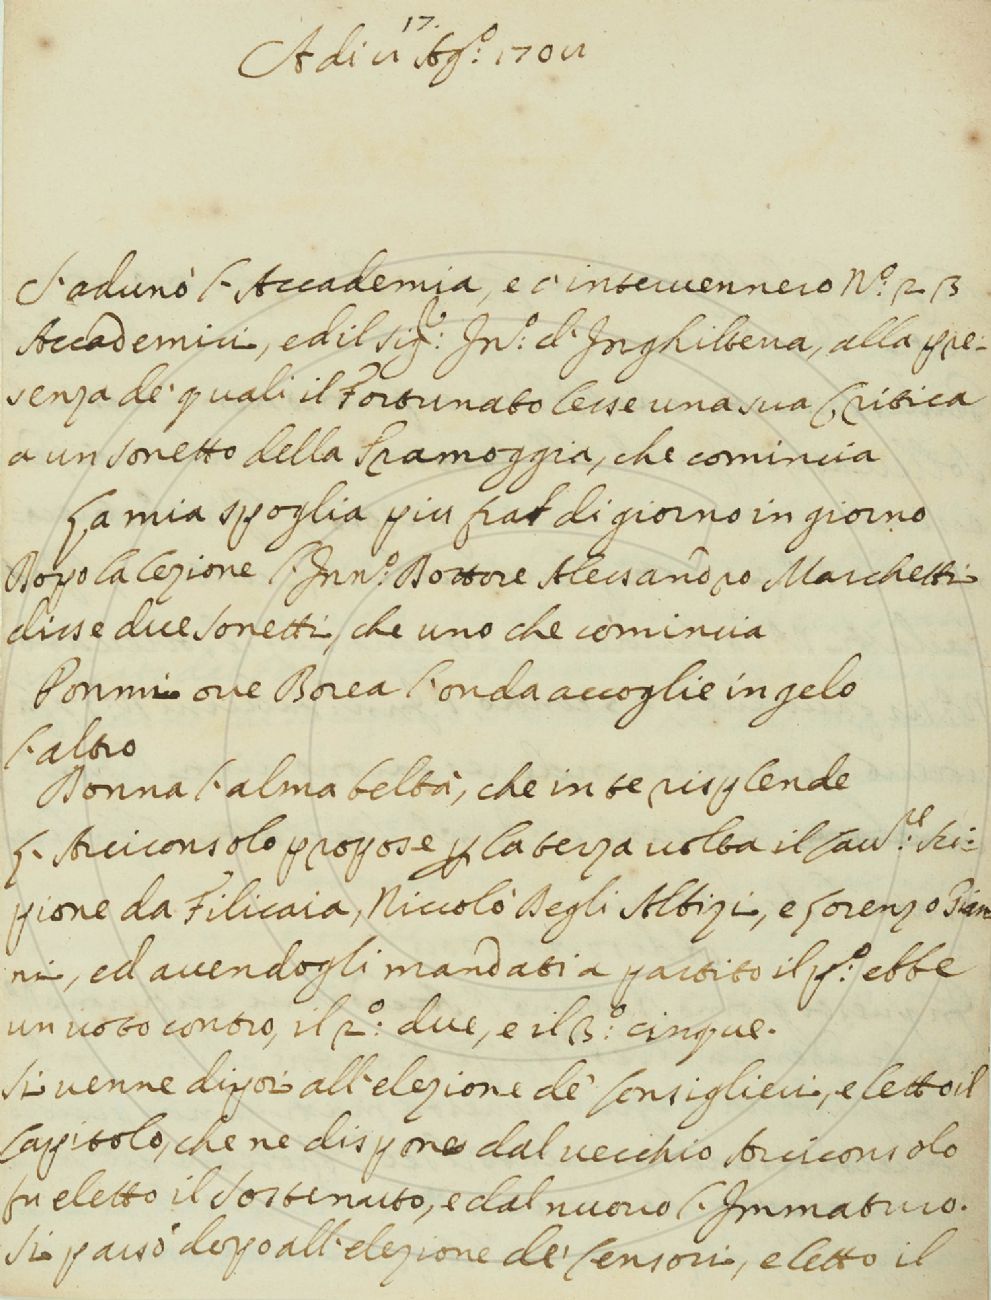 17.
Adi 11 Ag.º: 1701
S'adunò l'Accademia, e c'intervennero N.º: 23
Accademici, ed il Sig.r: In.º: d'Inghilterra, alla pre=
senza de' quali il Fortunato lesse una sua Critica
a un sonetto della Tramoggia, che comincia
La mia spoglia piu frat di giorno in giorno
Dopo la lezione l'Inn.º: Dottore Alessandro Marchetti
disse due Sonetti, che uno che comincia
Ponmi ove Borea l'onda accoglie in gelo
L'altro
Donna l'alma beltà, che in te risplende
L'Arciconsolo propose p la terza volta il Cav.re: Sci=
pione da Filicaia, Niccolò Degli Albizi, e Lorenzo Pian
ni, ed avendogli mandati a partito il p.º: ebbe
un voto contro, il 2.º: due, e il 3.º: cinque.
Si venne dipoi all'elezione de' Consiglieri, e letto il
Capitolo, che ne dispone dal vecchio Arciconsolo
fu eletto il Sostenuto, e dal nuovo l'Immaturo.
Si passò dopo all'elezione de' Censori, e letto il